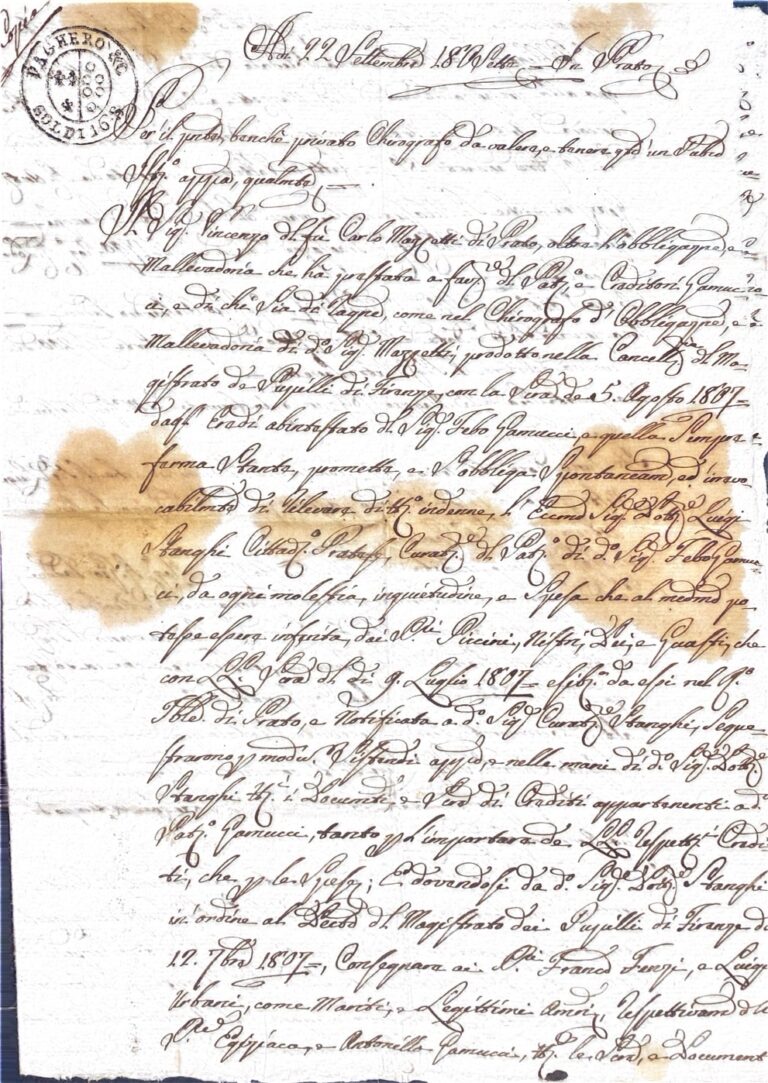 Copia
PAGHERO &C
SOLDI 16 8
Adi 22 Settembre 180Sette = In Prato
Per il pnte, benchè privato Chirografo da valere, e tenere qto un Pubco
appia, qualmte =
Il Sigr Vincenzo di fù Carlo Mazzetti di Prato, oltre l'obbligazne, e
Mallevadoria che hà prestata a favre del Patrio e Creditori Gamuc
ci, e di chi Sia di ragne, come nel Chirografo d'Obbligazne, e
Mallevadoria di do Sigr Mazzetti, prodotto nella Cancellria del Ma
gistrato de Pupilli di Firenze, con la Scra de 5. Agosto 1807=
dagl' Eredi abintestato del Sigr Febo Gamucci, e quella Sempre
ferma Stante, promette, e S'obbliga Spontaneamte, ed irrevo
cabilmte di rilevare indenne, l' Eccmo Sigr Dottre Luigi
Stanghi Cittadno Pratese, Curatre del Patrio di do Sigr Febo Gamuc
ci, da ogni molestia, inquietudine, e Spesa che al medmo po
tesse essere inferita, dai Piccini, Nistri, e Guasti, che
con Scra del di 9. Luglio 1807= esibta da essi nel
Tble. di Prato, e Notificata a do Sigr Curatre Stanghi, Seque
strarono nelle mani di do Sigr Dottre
Stanghi i Documenti, e Scre di Crediti appartenenti a do
Patrio Gamucci, tanto p l'importare de Loro respettvi Credi
ti, che p le Spese; E dovendosi da do Sigr Dottre Stanghi
in ordine al Decto del Magistrato dei Pupilli di Firenze de
12. 7bre 1807=, Consegnare ai Franco Tenzi, e Luigi
Urbani, come Mariti, e Legittimi Ammri, respettivamte delle
Egiziaca, e Antonilla Gamucci, le Scre, e Document